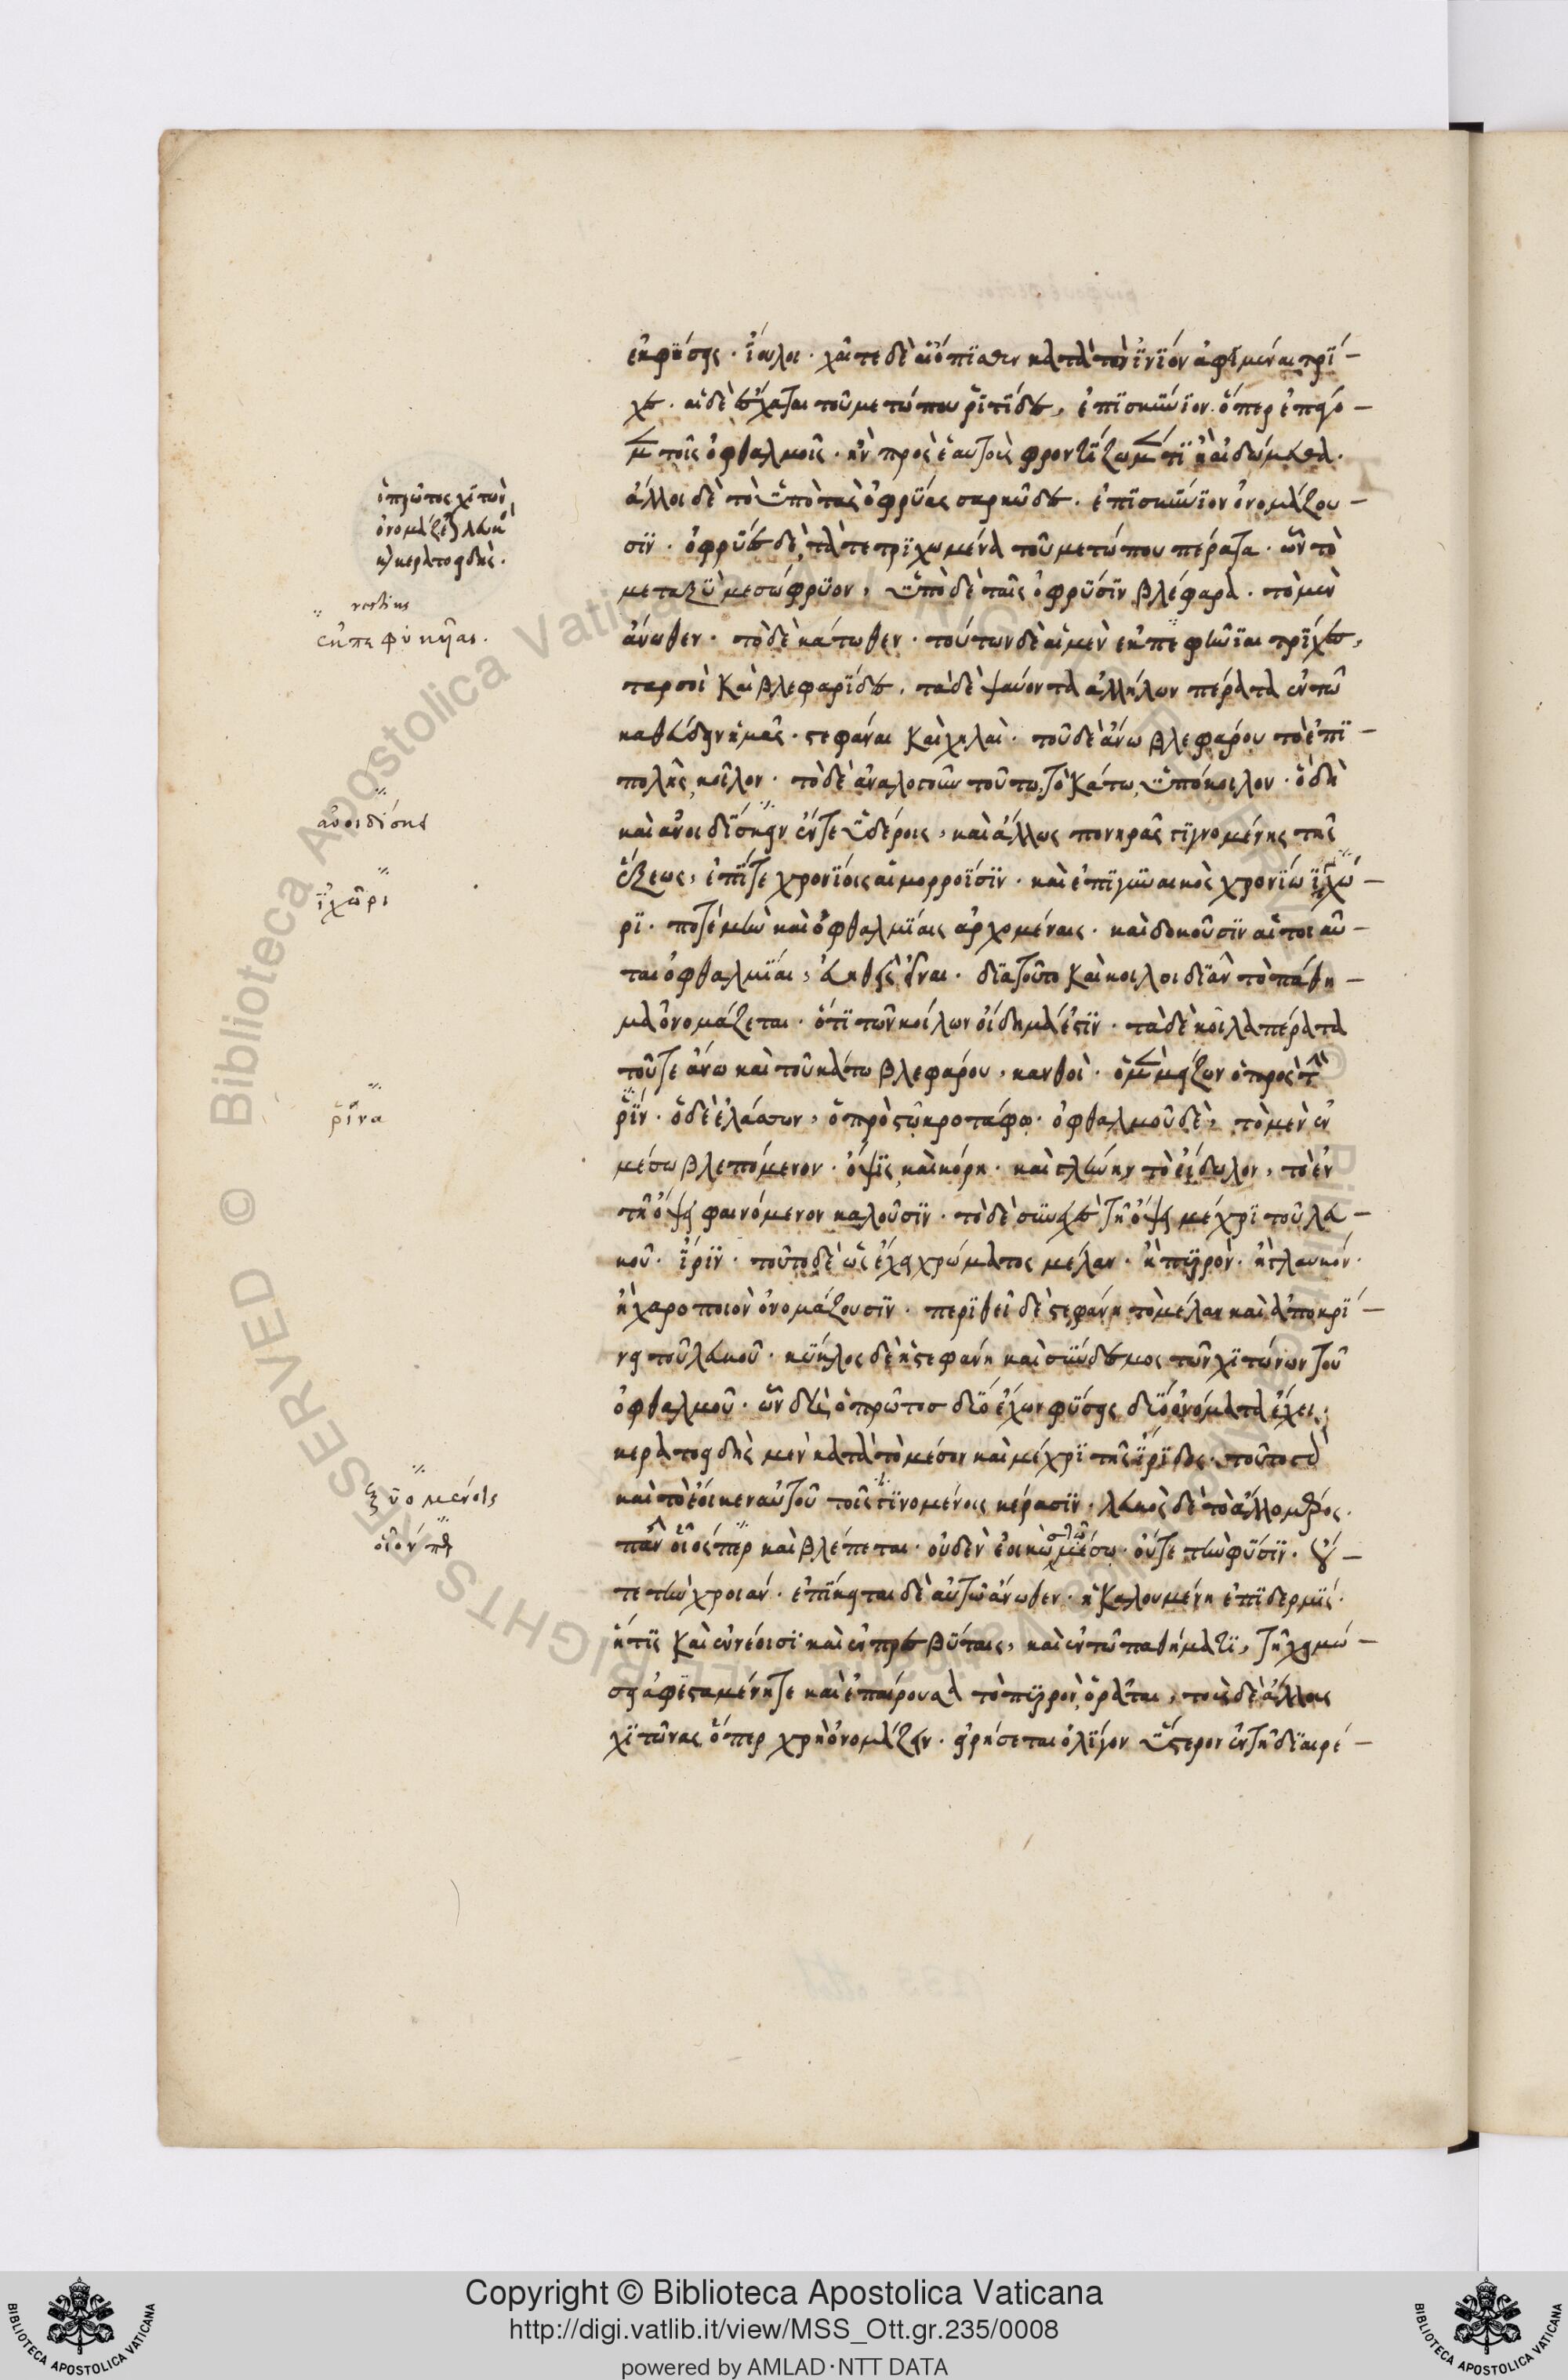 ἐκφύσεις · ἴουλοι · χαῖται δὲ αἱ ὄπϊσθεν κατὰ τὸν ἰνϊὸν ἀφειμέναι τρί–
χες · αἱ δὲ ἔσχαται τοῦ μετώπου ῥϊτίδες, ἐπϊσκύνϊον · ὅπερ ἐπάγο–
μεν τοῖς ὀφθαλμοῖς · ἢν πρὸς ἑαυτοὺς φροντίζωμέν τϊ ἢ αἰδώμεθα ·
ἄλλοι δὲ τὸ ὑπὸ τὰς ὀφρύας σαρκῶδες · ἐπϊσκύνϊον ὀνομάζου–
σϊν · ὀφρύες δὲ, τὰ τετρϊχωμένα τοῦ μετώπου πέρατα · ὧν τὸ
μεταξὺ μεσώφρυον, ὑπὸ δὲ ταῖς ὀφρύσϊν βλέφαρα · τὸ μὲν
ἄνωθεν · τὸ δὲ κάτωθεν · τούτων δὲ αἱ μὲν ἐκπεφυκυῖαι τρίχες,
ταρσοὶ καὶ βλεφαρϊδες, τὰ δὲ ψαύοντα ἀλλήλων πέρατα ἐν τῶ
καθεύδειν ἡμᾶς · στεφάναι καὶ χηλαὶ · τοῦ δὲ ἄνω βλεφάρου τὸ ἐπϊ–
πολῆς, κοῖλον · τὸ δὲ ἀναλογοῦν τούτω, τὸ κάτω, ὑπόκοιλον · ὃ δὴ
καὶ ἀνοιδίσκειν ἔν τε ὑδέροις, καὶ ἄλλως πονηρᾶς γϊγνομένης τῆς
ἕξεως, ἐπί τε χρονϊοις αἱμορροΐσϊν · καὶ ἐπϊ γυναικὸς χρονίω ἰχώ–
ρϊ · ποτὲ μὴν καὶ ὀφθαλμίαις ἀρχομέναις · καὶ δοκοῦσϊν αἱ τοιαῦ–
ται ὀφθαλμϊαι, εὐήθεις εἶναι · διατοῦτο καὶ κοιλοιδιᾶν τὸ πάθη–
μα ὀνομάζεται · ὅτϊ τῶν κοίλων οἴδημά ἐστϊν · τὰ δὲ κοῖλα πέρατα
τοῦ τε ἄνω καὶ τοῦ κάτω βλεφάρου, κανθοὶ · ὁ μὲν μείζων ὁ πρὸς τὴν
ῥϊν · ὁ δὲ ἐλάσσων, ὁ πρὸς τῶ κροτάφω · ὀφθαλμοῦ δὲ, τὸ μὲν ἐν
μέσω βλεπόμενον · ὄψϊς, καὶ κόρη · καὶ γλήνην τὸ εἴδωλον, τὸ ἐν
τῆ ὄψει φαινόμενον καλοῦσϊν · τὸ δὲ συνεχὲς τῆ ὄψει μέχρϊ τοῦ λευ–
κοῦ · ἶρϊν · τοῦτο δὲ ὡς ἔχει χρώματος μέλαν · ἢ πυρρὸν · ἢ γλαυκόν ·
ἢ χαροποιὸν ὀνομάζουσϊν · περϊθεῖ δὲ στεφάνη τὸ μέλαν καὶ ἀποκρί–
νει τοῦ λευκοῦ · κύκλος δὲ ἡ στεφάνη καὶ σύνδεσμος τῶν χϊτώνων τοῦ
ὀφθαλμοῦ · ὧν δὴ, ὁ πρῶτος δύο ἔχων φύσεις δύο ὀνόματα ἔχει,
κερατοειδὴς μὲν κατὰ τὸ μέσον καὶ μέχρϊ τῆς ἴρϊδος · τοῦτο γὰρ
καὶ τὸ ἔοικεν αὐτοῦ τοῖς γϊνομένοις κέρασϊν · λευκὸς δὲ τὸ ἄλλο μέρος ·
πᾶν οἷόσπερ καὶ βλέπεται · οὐδὲν ἐοικὼς τῶ μέσω · οὔτε τὴν φύσϊν · οὔ–
τε τὴν χροιάν · ἐπίκειται δὲ αὐτῶ ἄνωθεν · ἡ καλουμένη ἐπϊδερμὶς ·
ἥτϊς καὶ ἐν νέοισϊ καὶ ἐν πρεσβύταις, καὶ ἐν τῶ παθήματϊ, τῆ χημώ–
σει ἀφϊσταμένη τε καὶ ἐπαίρουσα τὸ πυρρὸν, ὁρᾶται, τοὺς δὲ ἄλλους
χϊτῶνας ὅπερ χρὴ ὀνομάζειν · εἰρήσεται ὀλίγον ὕστερον ἐν τῆ διαιρέ–
ὁ πρῶτος χϊτὼν
ὀνομάζεται λευκὸς
καὶ κερατοειδὴς.
rectius
ἐκπεφυκῆαι.
ἀνοιδίσκει
ἰχῶρι
ῥῖνα
ξυομένοις
οἷόν περ
Copyright © Biblioteca Apostolica Vaticana
http://digi.vatlib.it/view/MSS_Ott.gr.235/0008
powered by AMLAD·NTT DATA